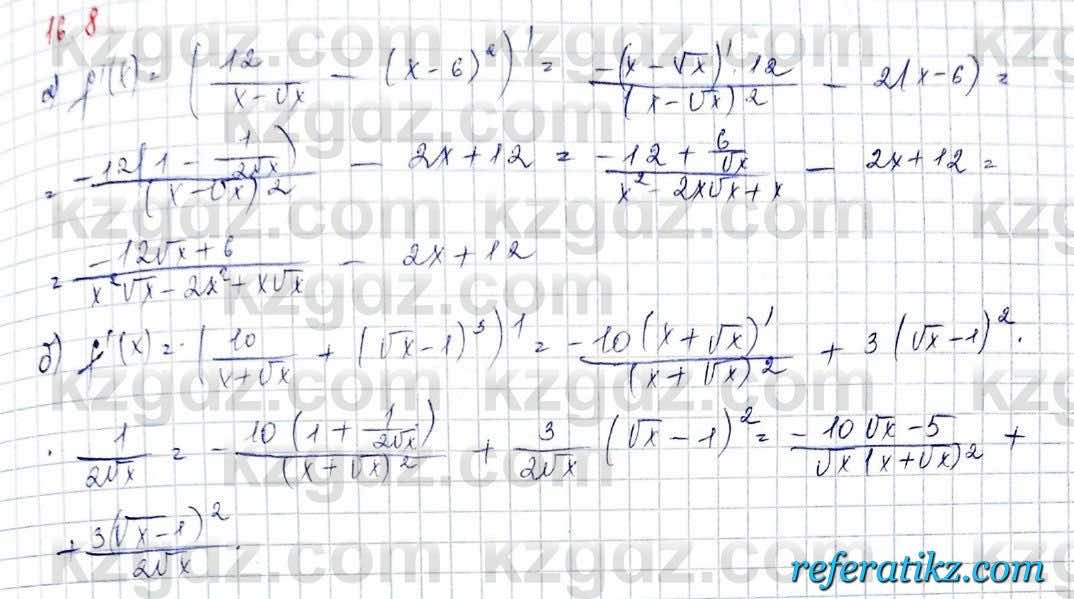 16.8
а) f'(x) = (12/(x-√x) - (x-6)²)' = -(x-√x)'·12/(x-√x)² - 2(x-6) =
= -12(1 - 1/(2√x))/(x-√x)² - 2x+12 = (-12 + 6/√x)/(x² - 2x√x + x) - 2x+12 =
= (-12√x + 6)/(x²√x - 2x² + x√x) - 2x+12
б) f'(x) = (10/(x+√x) + (√x-1)³)' = -10(x+√x)'/(x+√x)² + 3(√x-1)²·
· 1/(2√x) = -10(1 + 1/(2√x))/(x+√x)² + 3/(2√x) (√x-1)² = (-10√x-5)/(√x(x+√x)²) +
+ 3(√x-1)²/(2√x).
kzgdz.com
referatikz.com